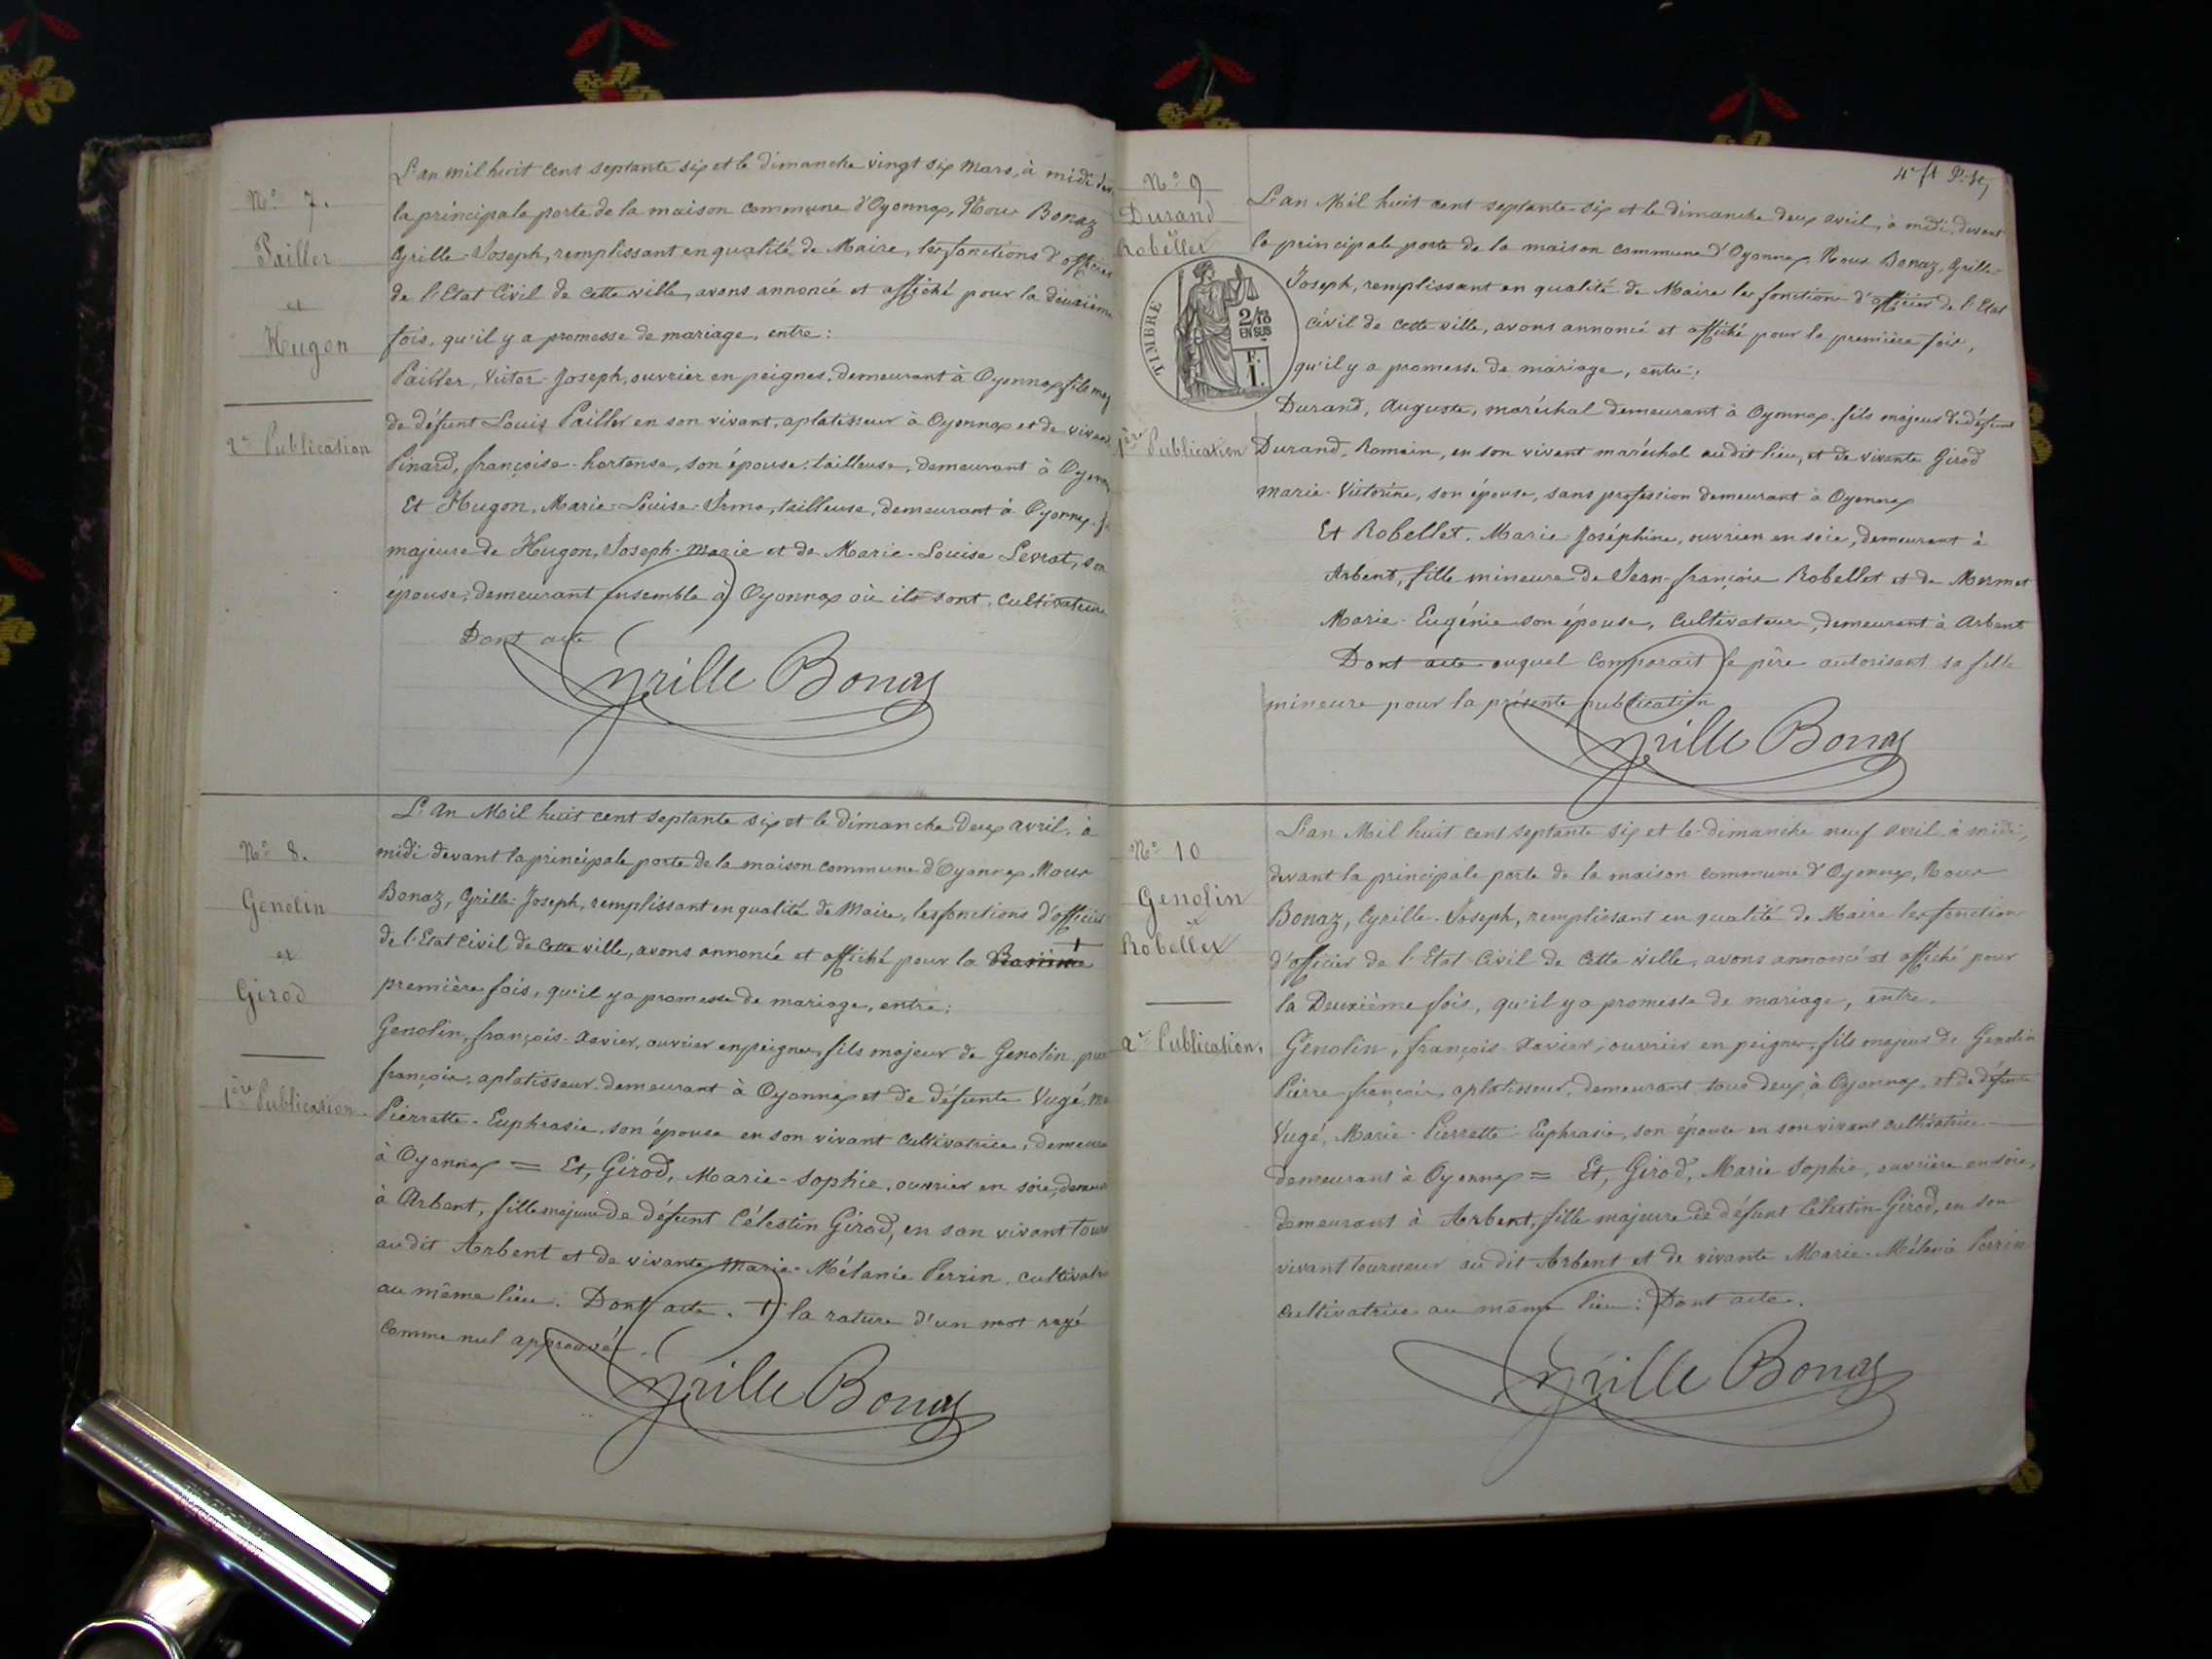 N° 7.
Pailler
et
Hugon
2e Publication
L'an mil huit cent septante six et le dimanche vingt six Mars, à midi
la principale porte de la maison commune d'Oyonnax, Nous Bonaz
Cyrille-Joseph, remplissant en qualité de Maire, les fonctions d'officier
de l'Etat Civil de cette ville, avons annoncé et affiché pour la deuxième
fois, qu'il y a promesse de mariage, entre:
Pailler, Victor-Joseph, ouvrier en peignes, demeurant à Oyonnax, fils maj
de défunt Louis Pailler en son vivant, aplatisseur à Oyonnax et de vivan
Pinard, françoise-hortense, son épouse, tailleuse, demeurant à Oyonna
Et Hugon, Marie-Louise-Irma, tailleuse, demeurant à Oyonnax
majeure de Hugon, Joseph-Marie et de Marie-Louise Levrat, son
épouse, demeurant ensemble à Oyonnax où ils sont, cultivateurs
Dont acte
Cyrille Bonaz
N° 8.
Genolin
et
Girod
1ère Publication.
L'An Mil huit cent septante six et le dimanche deux avril, à
midi devant la principale porte de la maison commune d'Oyonnax, Nous
Bonaz, Cyrille-Joseph, remplissant en qualité de Maire, les fonctions d'officier
de l'Etat Civil de cette ville, avons annoncé et affiché pour la
première fois, qu'il y a promesse de mariage, entre:
Genolin, françois-Xavier, ouvrier en peignes, fils majeur de Genolin
françois, aplatisseur, demeurant à Oyonnax et de défunte Vugé, Ma
Pierrette-Euphrasie, son épouse en son vivant cultivatrice, demeura
à Oyonnax = Et, Girod, Marie-Sophie, ouvrier en soie, demeu
à Arbent, fille majeure de défunt Célestin Girod, en son vivant tour
au dit Arbent et de vivante Marie-Mélanie Perrin, cultivatri
au même lieu. Dont acte. + la rature d'un mot rayé
comme nul approuvé.
Cyrille Bonaz
N° 9
Durand
Robellet
TIMBRE
2/10
EN SUS
F.
I.
1ère Publication
L'an Mil huit cent septante-six et le dimanche deux avril, à midi, devant
la principale porte de la maison commune d'Oyonnax, Nous Bonaz, Cyrille-
Joseph, remplissant en qualité de Maire les fonctions d'officier de l'Etat
civil de cette ville, avons annoncé et affiché pour la première fois,
qu'il y a promesse de mariage, entre:
Durand, Auguste, maréchal demeurant à Oyonnax, fils majeur de défunt
Durand, Romain, en son vivant maréchal audit lieu, et de vivante Girod
Marie-Victorine, son épouse, sans profession demeurant à Oyonnax
Et Robellet, Marie Joséphine, ouvrière en soie, demeurant à
Arbent, fille mineure de Jean-françois Robellet et de Mermet
Marie-Eugénie son épouse, cultivateurs, demeurant à Arbent
Dont acte auquel comparait le père autorisant sa fille
mineure pour la présente publication
Cyrille Bonaz
N° 10
Genolin
Robellet
2e Publication.
L'an Mil huit cent septante six et le dimanche neuf avril à midi,
devant la principale porte de la maison commune d'Oyonnax, Nous
Bonaz, Cyrille-Joseph, remplissant en qualité de Maire les fonctions
d'officier de l'Etat Civil de cette ville, avons annoncé et affiché pour
la Deuxième fois, qu'il y a promesse de mariage, entre.
Génolin, françois-Xavier, ouvrier en peignes, fils majeur de Genolin
Pierre-françois, aplatisseur, demeurant tous deux à Oyonnax, et de défunte
Vugé, Marie-Pierrette-Euphrasie, son épouse en son vivant cultivatrice
demeurant à Oyonnax = Et, Girod, Marie Sophie, ouvrière en soie,
demeurant à Arbent, fille majeure de défunt Célestin Girod, en son
vivant tourneur au dit Arbent et de vivante Marie-Mélanie Perrin
cultivatrice au même lieu: Dont acte.
Cyrille Bonaz